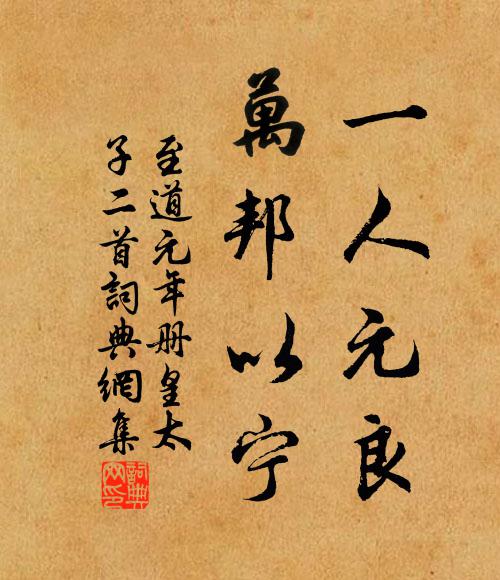 一人元良
萬邦以宁
至道元年册皇太
子二首詞典網集
詞典
网印